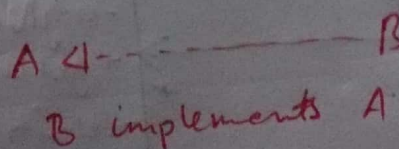 A B
B implements A